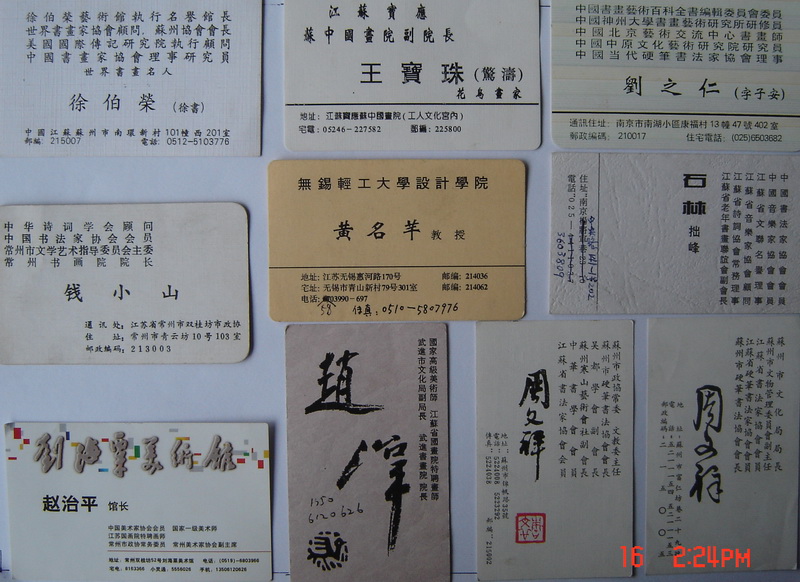 徐伯榮藝術館執行名譽館長
世界書畫家協會顧問，蘇州協會會長
美國國際傳記研究院執行顧問
中國書畫家協會理事研究員
世界書畫名人
徐伯榮 (徐書)
中國江蘇蘇州市南環新村101幢西201室
郵編: 215007 電話: 0512-5103776
江蘇寶應
蘇中國畫院副院長
王寶珠 (驚濤)
花鳥畫家
地址: 江蘇寶應蘇中國畫院(工人文化宮內)
宅電: 05246-227582 郵編: 225800
中國書畫藝術百科全書編輯委員會委員
中國神州大學書畫藝術研究所研修員
中國北京藝術交流中心書畫師
中國中原文化藝術研究院研究員
中國當代硬筆書法家協會理事
劉之仁 (字子安)
通訊住址: 南京市南湖小區康福村13幢47號402室
郵政編碼: 210017 住宅電話: (025)6503682
中华诗词学会顾问
中国书法家协会会员
常州市文学艺术指导委员会主委
常州书画院院长
钱小山
通讯处: 江苏省常州市双桂坊市政协
住址: 常州市青云坊10号103室
邮政编码: 213003
無錫輕工大學設計學院
黃名芊 教授
地址: 江苏无锡惠河路170号 邮编: 214036
宅址: 无锡市青山新村79号301室 邮编: 214062
电话: 5803990-697
传真: 0510-5807976
中國書法家協會會員
中國音樂家協會會員
江蘇省文聯名譽理事
江蘇省音樂家協會顧問
江蘇省詩詞協會常務理事
江蘇省老年書畫聯誼會副會長
石林
拙峰
電話: 025
3603809
劉海粟美術館
赵治平 馆长
中国美术家协会会员 国家一级美术师
江苏国画院特聘画师
常州市政协常务委员 常州美术家协会副主席
地址: 常州双桂坊54号刘海粟美术馆 电话: (0519)-6603968
宅电: 8163366 小灵通: 5556026 手机: 13506120626
國家高級美術師 江蘇省國畫院特聘畫師
武進市文化局副局長 武進書畫院院長
趙
1350
6120626
蘇州市政協常委、文教委主任
蘇州市硬筆書法協會會長
吳都學會副會長
蘇州寒山藝術會社副會長
中華書學會會員
江蘇省書法家協會會員
周文祥
郵編: 215002
蘇州市文化局局長
蘇州市文物管理委員會副主任
江蘇省書法家協會會員
江蘇省硬筆書法家協會會員
蘇州市硬筆書法協會會長
周文祥
16 2:24PM